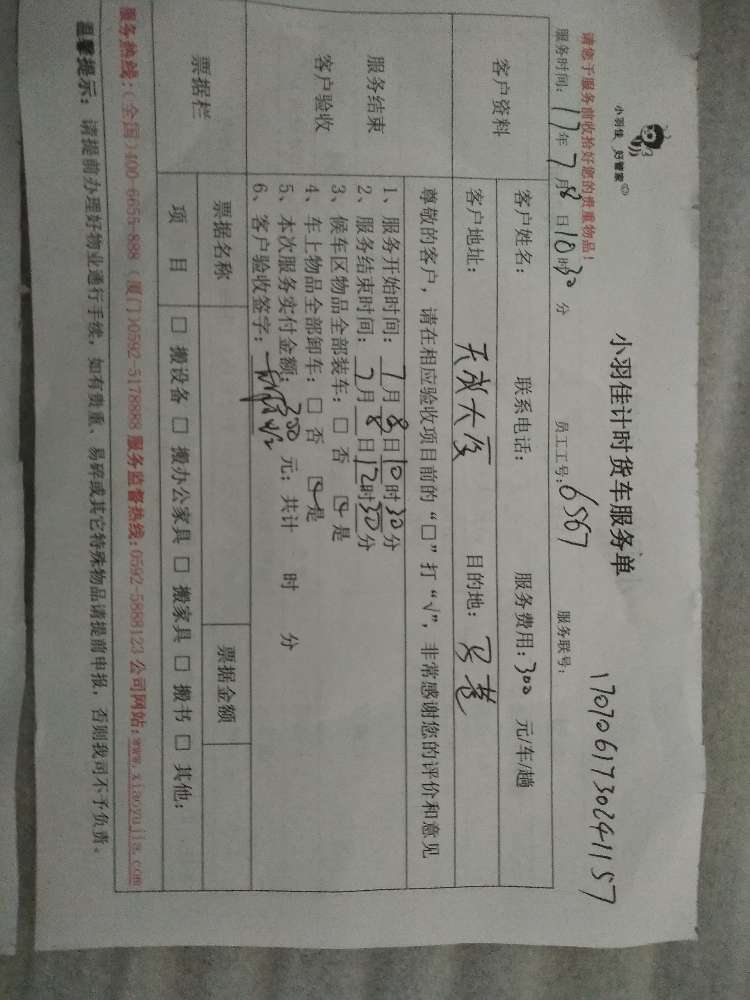 小羽佳 好管家
小羽佳计时货车服务单
17070617302241157
请您于服务前收拾好您的贵重物品！
服务时间：17年7月8日10时30分 员工工号：6567 服务联号：
客户资料
客户姓名： 联系电话： 服务费用：300 元/车/趟
客户地址：天成大厦 目的地：
尊敬的客户，请在相应验收项目前的“□”打“√”，非常感谢您的评价和意见
服务结束
客户验收
1、服务开始时间：7月8日10时30分
2、服务结束时间：7月8日12时30分
3、候车区物品全部装车：□ 否 ☑ 是
4、车上物品全部卸车：□ 否 ☑ 是
5、本次服务实付金额：300 元；共计 时 分
6、客户验收签字：
票据栏
票据名称 票据金额
项 目 □ 搬设备 □ 搬办公家具 □ 搬家具 □ 搬书 □ 其他：
服务热线：（全国）400-6655-888（厦门）0592-5178888 服务监督热线：0592-5888123 公司网站：www.xiaoyujia.com
温馨提示：请提前办理好物业通行手续，如有贵重、易碎或其它特殊物品请提前申报，否则我司不予负责。